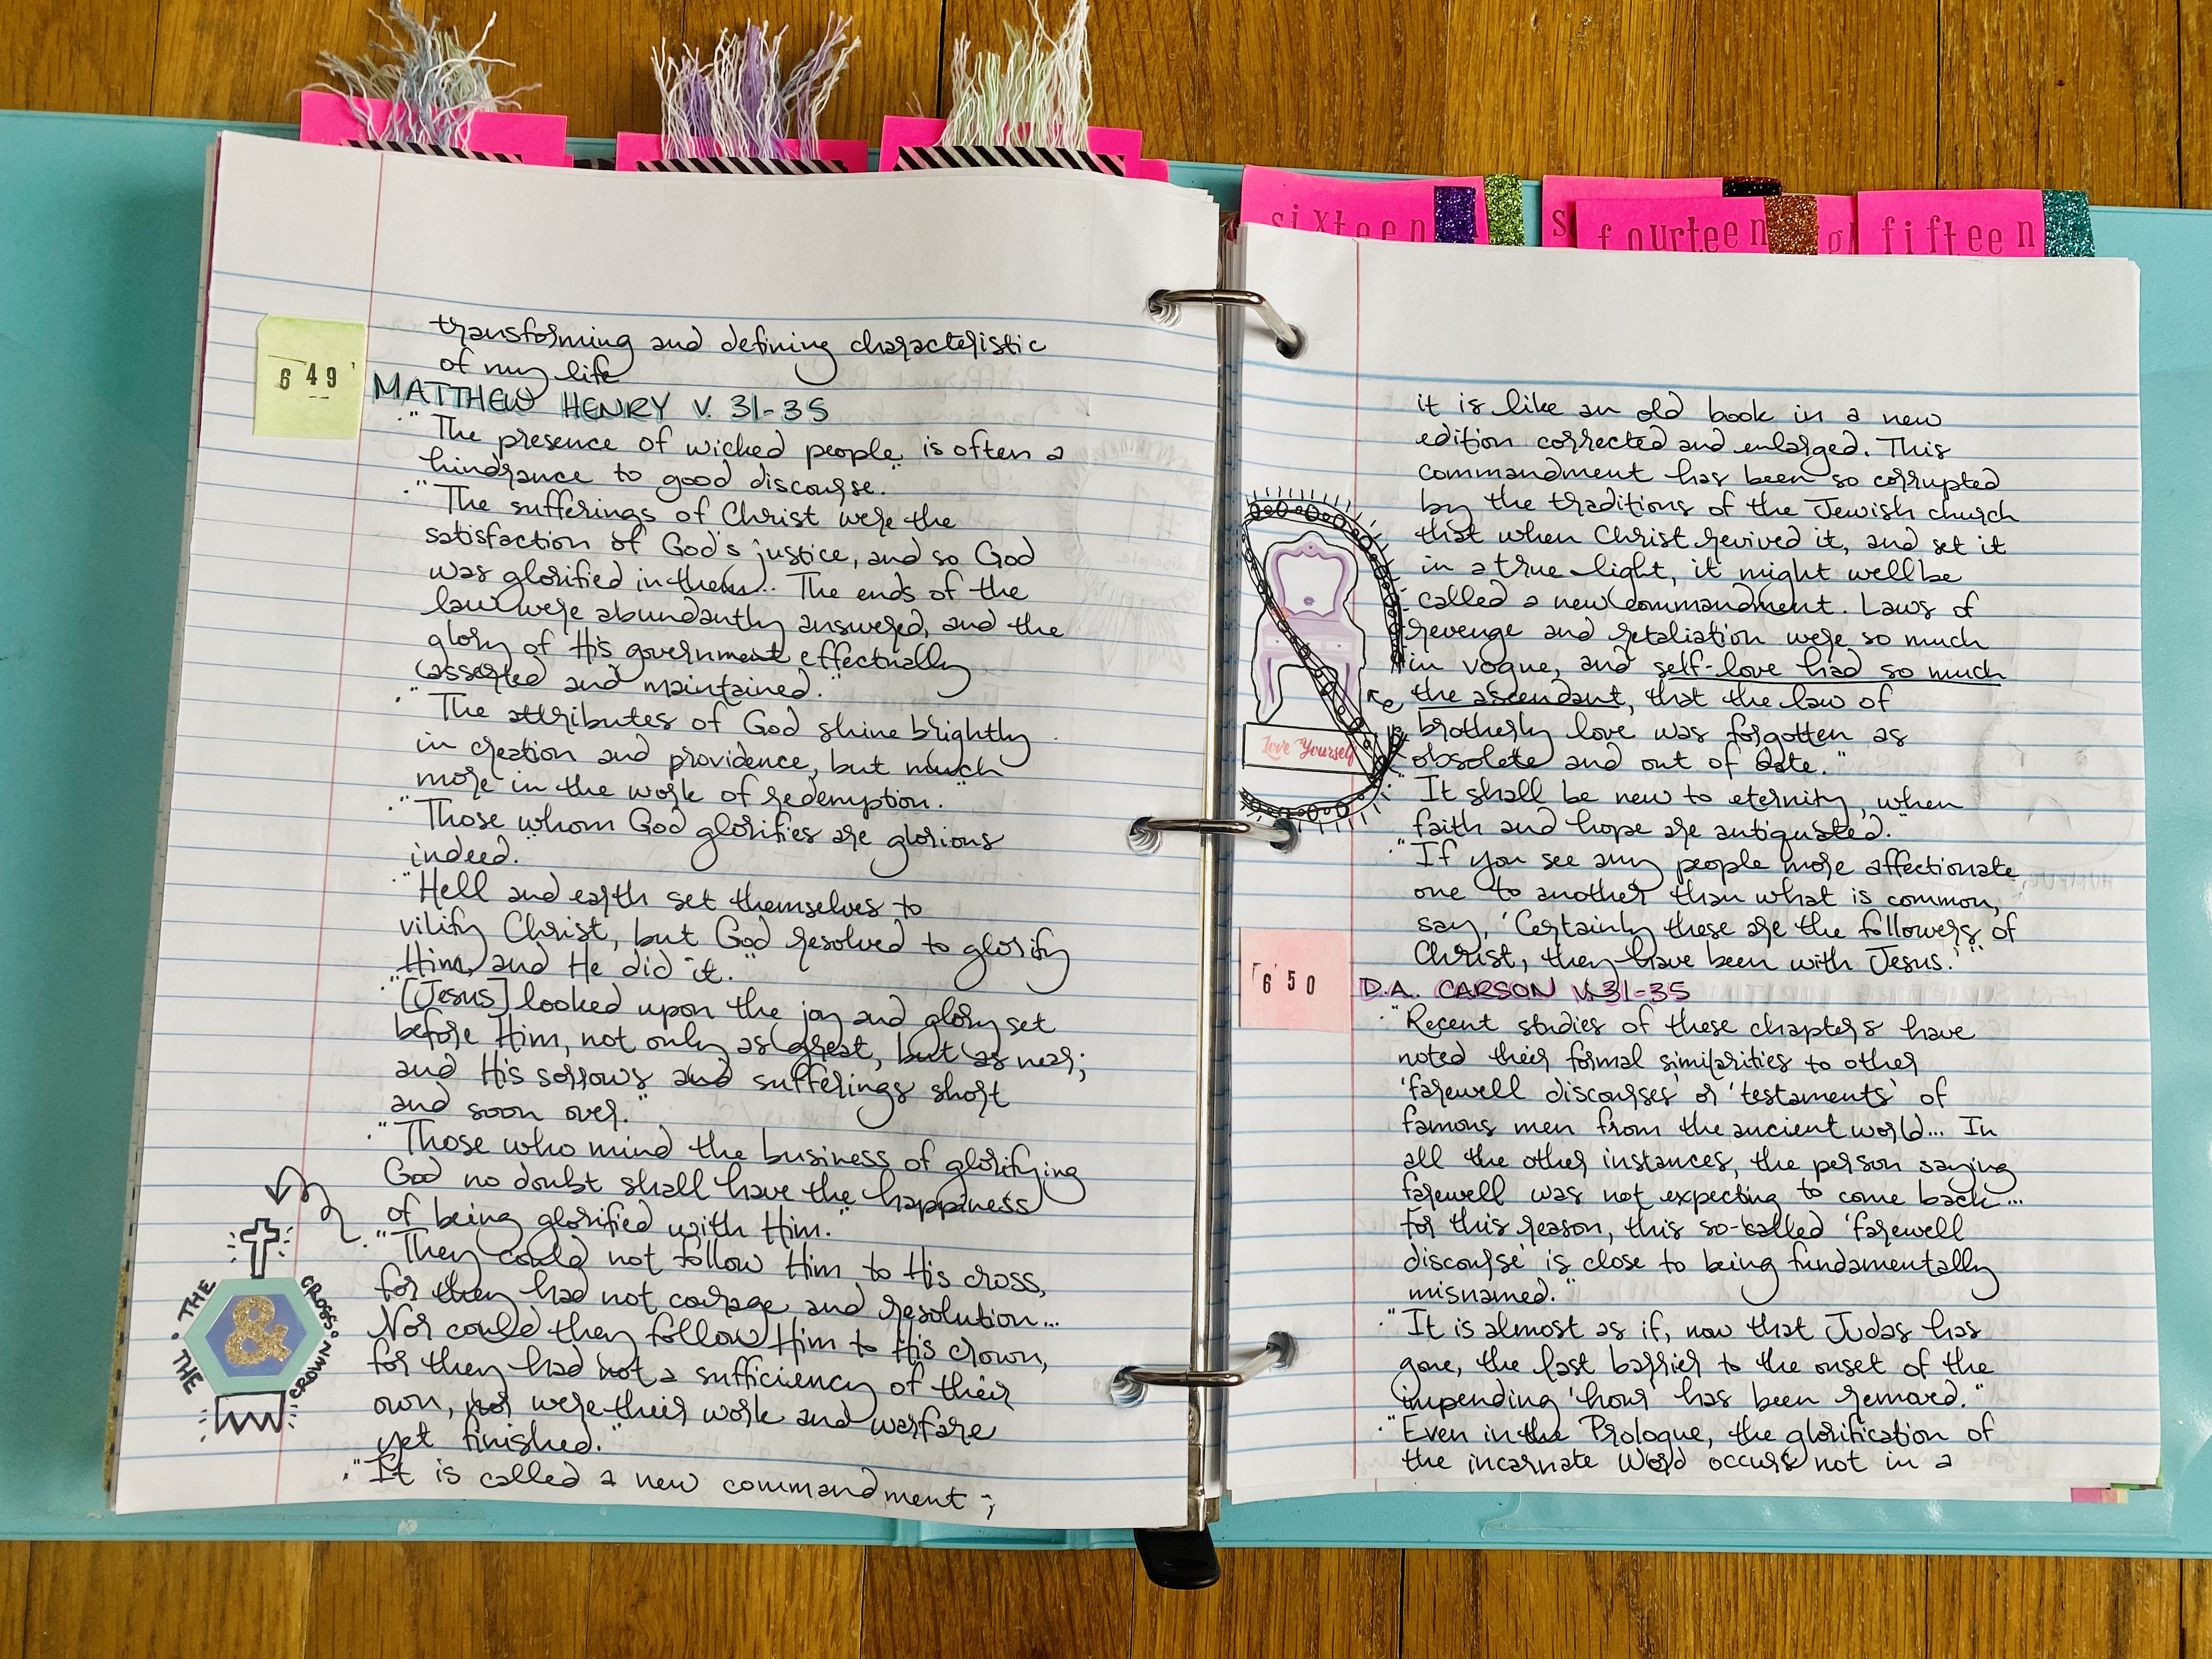 sixteen
fourteen
fifteen
649
transforming and defining characteristic
of my life
MATTHEW HENRY V. 31-35
· "The presence of wicked people is often a
hindrance to good discourse."
· "The sufferings of Christ were the
satisfaction of God's justice, and so God
was glorified in them... The ends of the
law were abundantly answered, and the
glory of His government effectually
asserted and maintained."
· "The attributes of God shine brightly
in creation and providence, but much
more in the work of redemption."
· "Those whom God glorifies are glorious
indeed."
· "Hell and earth set themselves to
vilify Christ, but God resolved to glorify
Him, and He did it."
· "[Jesus] looked upon the joy and glory set
before Him, not only as great, but as near;
and His sorrows and sufferings short
and soon over."
· "Those who mind the business of glorifying
God no doubt shall have the happiness
of being glorified with Him."
· "They could not follow Him to His cross,
for they had not courage and resolution...
Nor could they follow Him to His crown,
for they had not a sufficiency of their
own, nor were their work and warfare
yet finished."
· "It is called a new commandment;
· THE CROSS ·
&
THE CROWN
it is like an old book in a new
edition corrected and enlarged. This
commandment has been so corrupted
by the traditions of the Jewish church
that when Christ revived it, and set it
in a true light, it might well be
called a new commandment. Laws of
revenge and retaliation were so much
in vogue, and self-love had so much
the ascendant, that the law of
brotherly love was forgotten as
obsolete and out of date."
Love Yourself
· "It shall be new to eternity, when
faith and hope are antiquated."
· "If you see any people more affectionate
one to another than what is common,
say, 'Certainly these are the followers of
Christ, they have been with Jesus.'"
650
D.A. CARSON V. 31-35
· "Recent studies of these chapters have
noted their formal similarities to other
'farewell discourses' or 'testaments' of
famous men from the ancient world... In
all the other instances, the person saying
farewell was not expecting to come back...
For this reason, this so-called 'farewell
discourse' is close to being fundamentally
misnamed."
· "It is almost as if, now that Judas has
gone, the last barrier to the onset of the
impending 'hour' has been removed."
· "Even in the Prologue, the glorification of
the incarnate Word occurs not in a